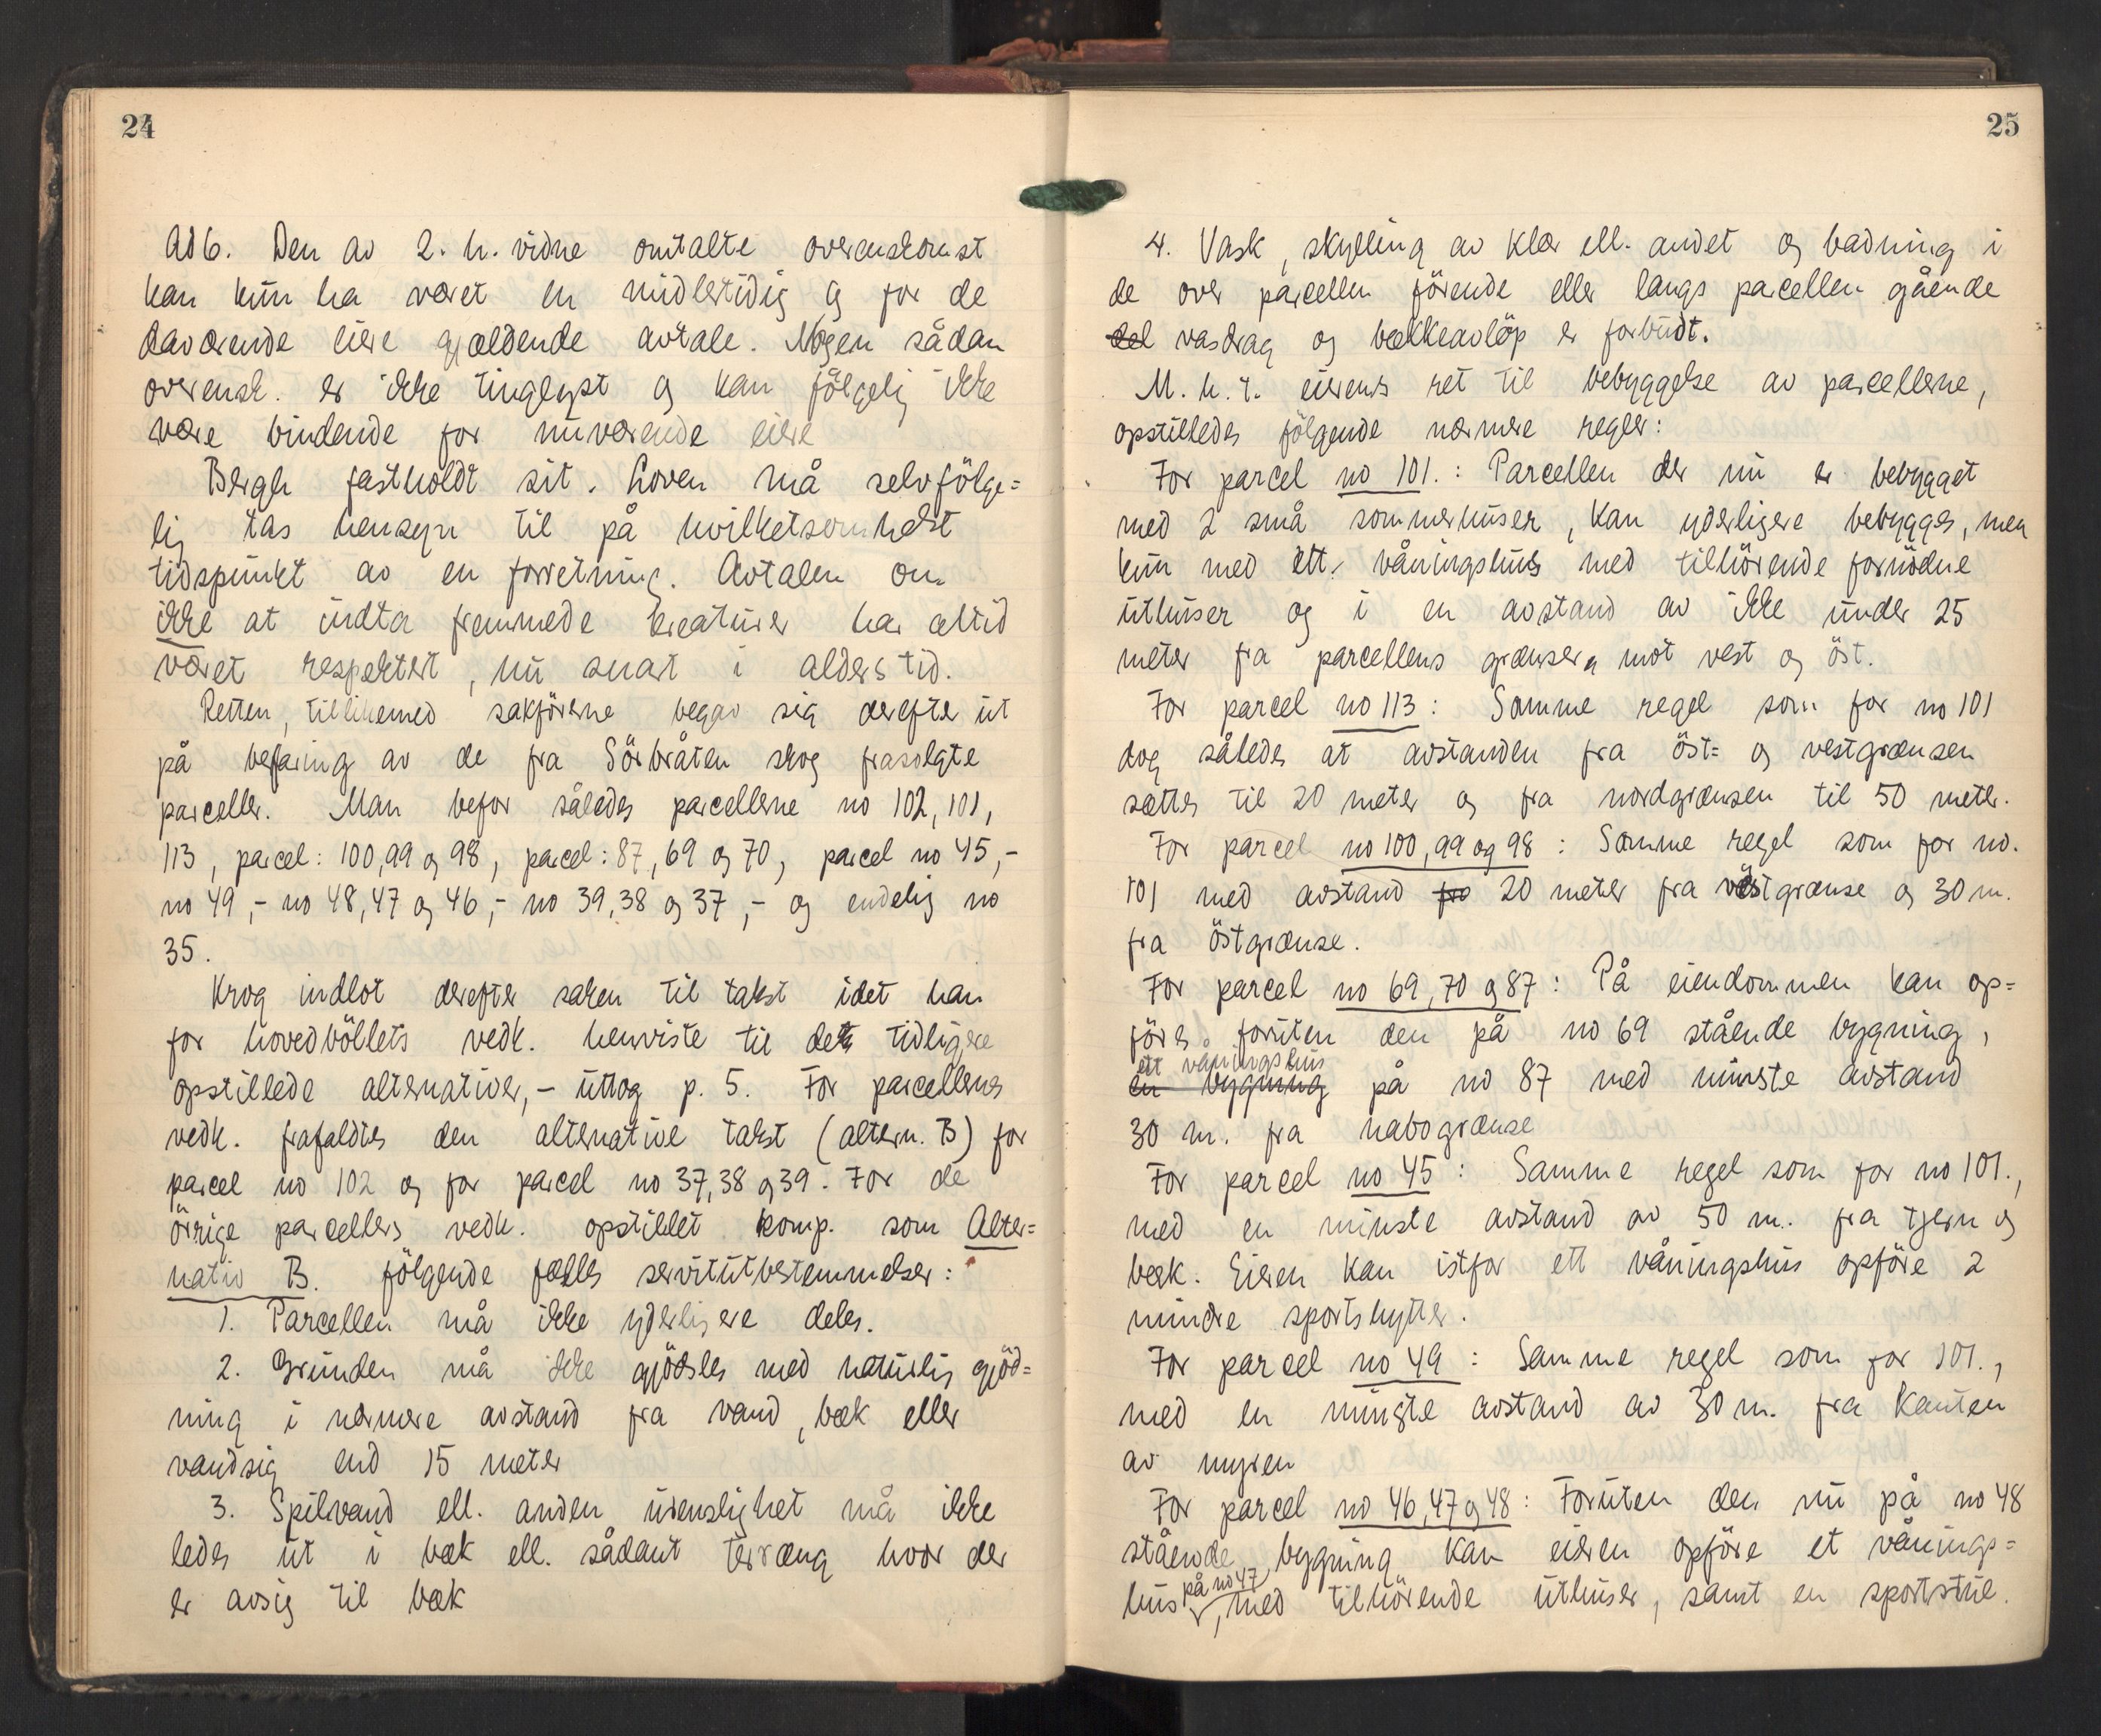 24
Ad 6. Den av 2. h. vidne omtalte overenskomst
kan kun ha været en midlertidig og for de
daværende eiere gjældende avtale. Nogen sådan
overensk. er ikke tinglyst og kan fölgelig ikke
være bindende for nuværende eiere
Bergh fastholdt sit. Loven må selvfölge=
lig tas hensyn til på hvilketsomhelst
tidspunkt av en forretning. Avtalen om
ikke at indta fremmede kreaturer har altid
været respektert, nu snart i alders tid.
Retten, tillikemed sakförerne begav sig derefter ut
på befaring av de fra Sörbråten skog frasolgte
parceller. Man befor således parcellerne no 102, 101,
113, parcel: 100, 99 og 98, parcel: 87, 69 og 70, parcel no 45,-
no 49,- no 48, 47 og 46,- no 39, 38 og 37,- og endelig no
35.
Krog indlot derefter saken til takst idet han
for hovedböllets vedk. henviste til de tidligere
opstillede alternativer,- uttog p. 5. For parcellenes
vedk. frafaldtes den alternative takst (altern. B) for
parcel no 102 og for parcel no 37, 38 og 39. For de
övrige parcellers vedk. opstillet komp. som Alter=
nativ B. fölgende fælles servitutbestemmelser:
1. Parcellen må ikke yderligere deles.
2. Grunden må ikke gjödsles med naturlig gjöd=
ning i nærmere avstand fra vand, bæk eller
vandsig end 15 meter
3. Spilvand ell. anden urenslighet må ikke
ledes ut i bæk ell. sådant terræng hvor der
er avsig til bæk
25
4. Vask, skylling av klær ell. andet og badning i
de over parcellen förende eller langs parcellen gående
del vasdrag og bækkeavlöp er forbudt.
M. h. t. eierens ret til bebyggelse av parcellerne,
opstilledes fölgende nærmere regler:
For parcel no 101.: Parcellen der nu er bebygget
med 2 små sommerhuser, kan yderligere bebygges, men
kun med ett våningshus med tilhörende fornödne
uthuser og i en avstand av ikke under 25
meter fra parcellens grænser mot vest og öst.
For parcel no 113: Samme regel som for no 101
dog således at avstanden fra öst= og vestgrænsen
sættes til 20 meter og fra nordgrænsen til 50 meter.
For parcel no 100, 99 og 98: Samme regel som for no.
101 med avstand fra 20 meter fra vestgrænse og 30 m.
fra östgrænse.
For parcel no 69, 70 og 87: På eiendommen kan op=
föres foruten den på no 69 stående bygning,
ett våningshus
en bygning på no 87 med minste avstand
30 m. fra nabogrænse
For parcel no 45: Samme regel som for no 101.,
med en minste avstand av 50 m. fra tjern og
bæk. Eieren kan istfor ett våningshus opföre 2
mindre sportshytter.
For parcel no 49: Samme regel som for 101.,
med en minste avstand av 30 m. fra kanten
av myren
For parcel no 46, 47 og 48: Foruten den nu på no 48
stående bygning kan eieren opföre et vånings=
på no 47
hus, med tilhörende uthuser, samt en sportstue.